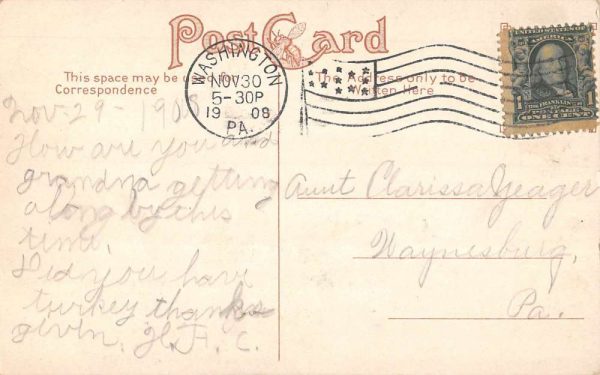 Post Card
This space may be used for
Correspondence
The Address only to be
Written Here
WASHINGTON
NOV 30
5-30P
19 08
PA.
UNITED STATES OF
AMERICA
1 FRANKLIN 1
POSTAGE
ONE CENT
Nov-29-1908
How are you and
grandna getting
along by this
time.
Did you have
turkey thanks
given. H. F. C.
Aunt Clarissa Yeager
Waynesburg,
Pa.